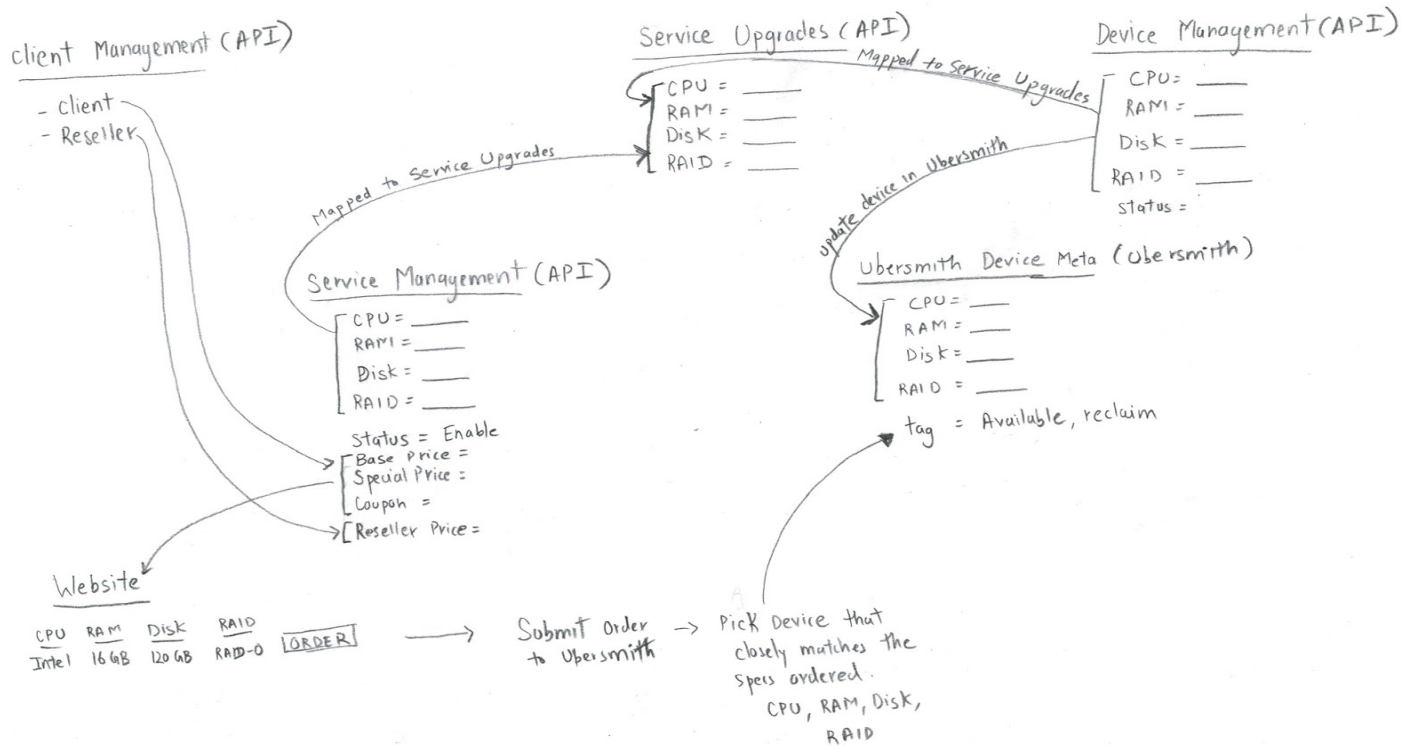 Client Management (API)
- Client
- Reseller
Service Upgrades (API)
CPU = ____
RAM = ____
Disk = ____
RAID = ____
Device Management (API)
CPU= ____
RAM = ____
Disk = ____
RAID = ____
Status =
Mapped to Service Upgrades
Mapped to Service Upgrades
Update device in Ubersmith
Service Management (API)
CPU = ____
RAM = ____
Disk = ____
RAID = ____
Status = Enable
Base Price =
Special Price =
Coupon =
Reseller Price =
Ubersmith Device Meta (Ubersmith)
CPU= ____
RAM = ____
Disk = ____
RAID = ____
tag = Available, reclaim
Website
CPU RAM Disk RAID
Intel 16 GB 120 GB RAID-0 ORDER
Submit Order
to Ubersmith
Pick Device that
closely matches the
specs ordered.
CPU, RAM, Disk,
RAID